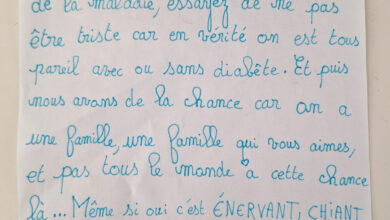 de la maladie, essayez de ne pas
être triste car en vérité on est tous
pareil avec ou sans diabête. Et puis
nous avons de la chance car on a
une famille, une famille qui vous aimes,
et pas tous le monde à cette chance
là... Même si oui c'est ÉNERVANT, CHIANT